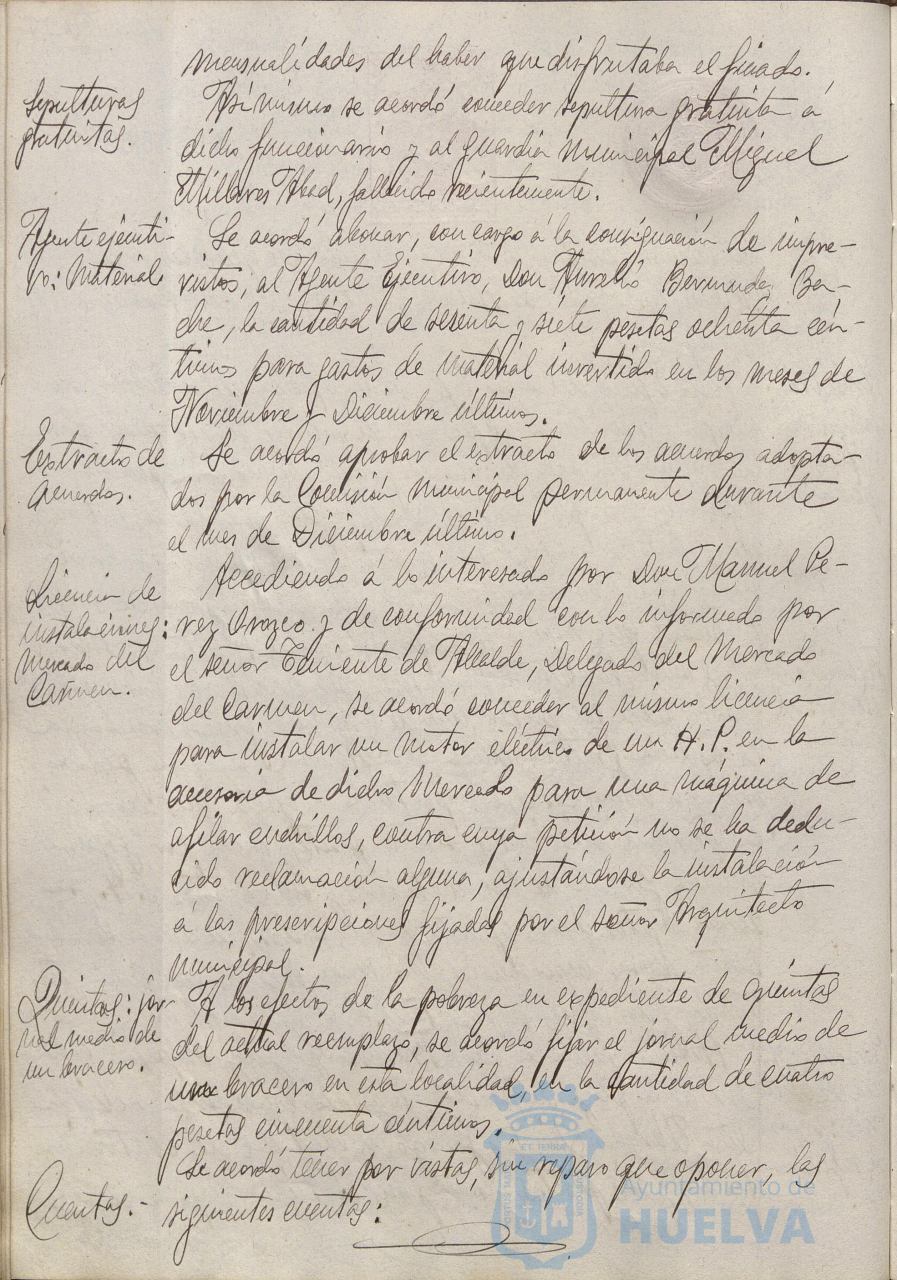 mensualidades del haber que disfrutaba el finado.
Sepulturas
gratuitas.
Asímismo se acordó conceder sepultura gratuita á
dicho funcionario y al guardia municipal Miguel
Millares Abad, fallecido recientemente.
Agente ejecuti-
vo: Material
Se acordó abonar, con cargo á la consignación de impre-
vistos, al Agente Ejecutivo, Don Aurelio Bermudez Ba-
che, la cantidad de sesenta y siete pesetas ochenta cén-
timos para gastos de material invertido en los meses de
Noviembre y Diciembre últimos.
Extracto de
acuerdos.
Se acordó aprobar el extracto de los acuerdos adopta-
dos por la Comisión municipal permanente durante
el mes de Diciembre último.
Licencia de
instalaciones:
Mercado del
Carmen.
Accediendo á lo interesado por Don Manuel Pe-
rez Orozco y de conformidad con lo informado por
el señor Teniente de Alcalde, Delegado del Mercado
del Carmen, se acordó conceder al mismo licencia
para instalar un motor eléctrico de un H.P. en la
accesoria de dicho Mercado para una máquina de
afilar cuchillos, contra cuya petición no se ha dedu-
cido reclamación alguna, ajustándose la instalación
á las prescripciones fijadas por el señor Arquitecto
municipal.
Quintas: jor-
nal medio de
un bracero.
A los efectos de la pobreza en expediente de quintas
del actual reemplazo, se acordó fijar el jornal medio de
un bracero en esta localidad, en la cantidad de cuatro
pesetas cincuenta céntimos.
Cuentas.-
Se acordó tener por vistas, sin reparo que oponer, las
siguientes cuentas:
Ayuntamiento de
HUELVA